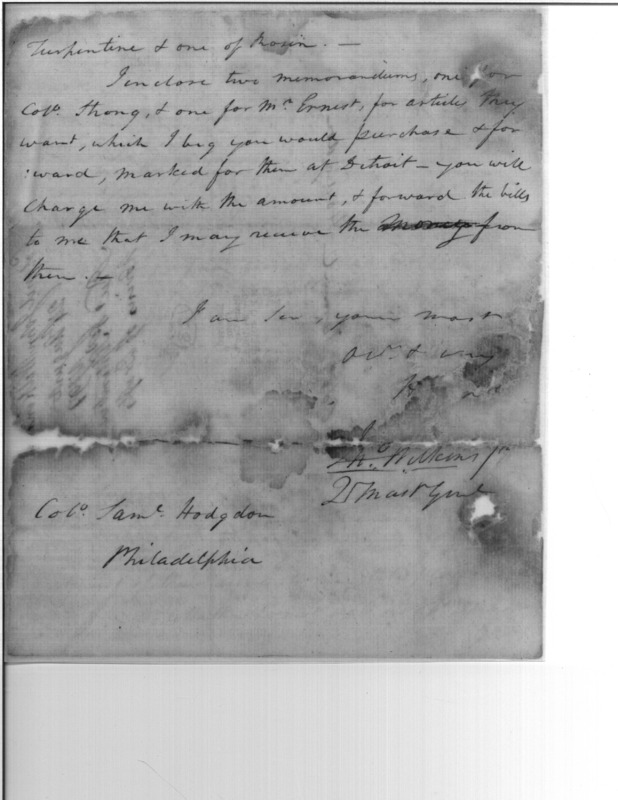 Turpentine & one of Rosin. —
I enclose two memorandums, one for
Colo. Strong, & one for Mr. Ernest, for article they
want, which I beg you would purchase & for
:ward, marked for them at Detroit — you will
charge me with the amount, & forward the bills
to me that I may receive the money from
them. —
I am Sir, your most
Obt. & very
Jno. Wilkins jr
Qr Mast Genl
Colo. Saml. Hodgdon
Philadelphia